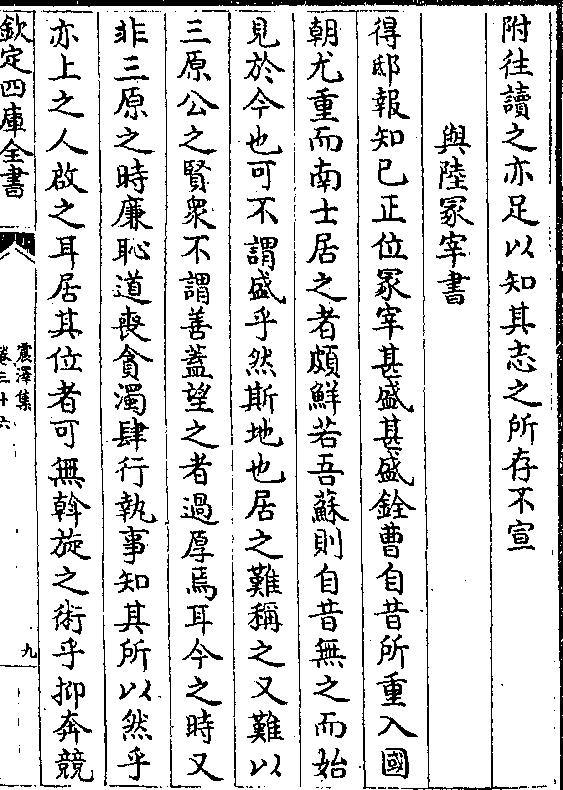 附往讀之亦足以知其志之所存不宣
與陸冢宰書
得邸報知已正位冢宰甚盛甚盛銓曹自昔所重入國
朝尤重而南士居之者頗鮮若吾蘇則自昔無之而始
見於今也可不謂盛乎然斯地也居之難稱之又難以
三原公之賢衆不謂善蓋望之者過厚焉耳今之時又
非三原之時廉恥道喪貪濁肆行執事知其所以然乎
亦上之人啟之耳居其位者可無斡旋之術乎抑奔競
欽定四庫全書
震澤集
卷三十六
九